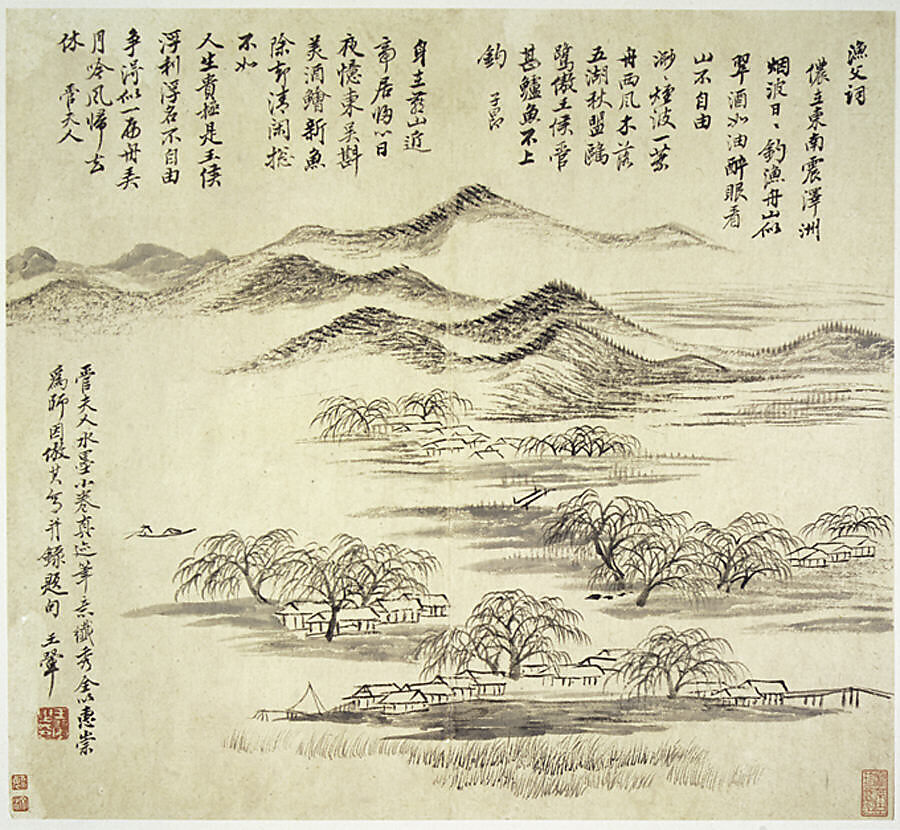 漁父詞
儂在東南震澤洲
烟波日〻釣漁舟山似
翠酒如油醉眼看
山不自由
渺〻煙波一葉
舟西風木落
五湖秋盟鷗
鷺傲王侯管
甚鱸魚不上
鈎 子昂
身在燕山近
帝居歸心日
夜憶東吳斟
美酒鱠新魚
除却清閑總
不如
人生貴極是王侯
浮利浮名不自由
爭得似一扁舟弄
月吟風歸去
休 管夫人
管夫人水墨小卷真迹筆意纖秀全以惠崇
爲師因倣其寫并錄題句 王翬